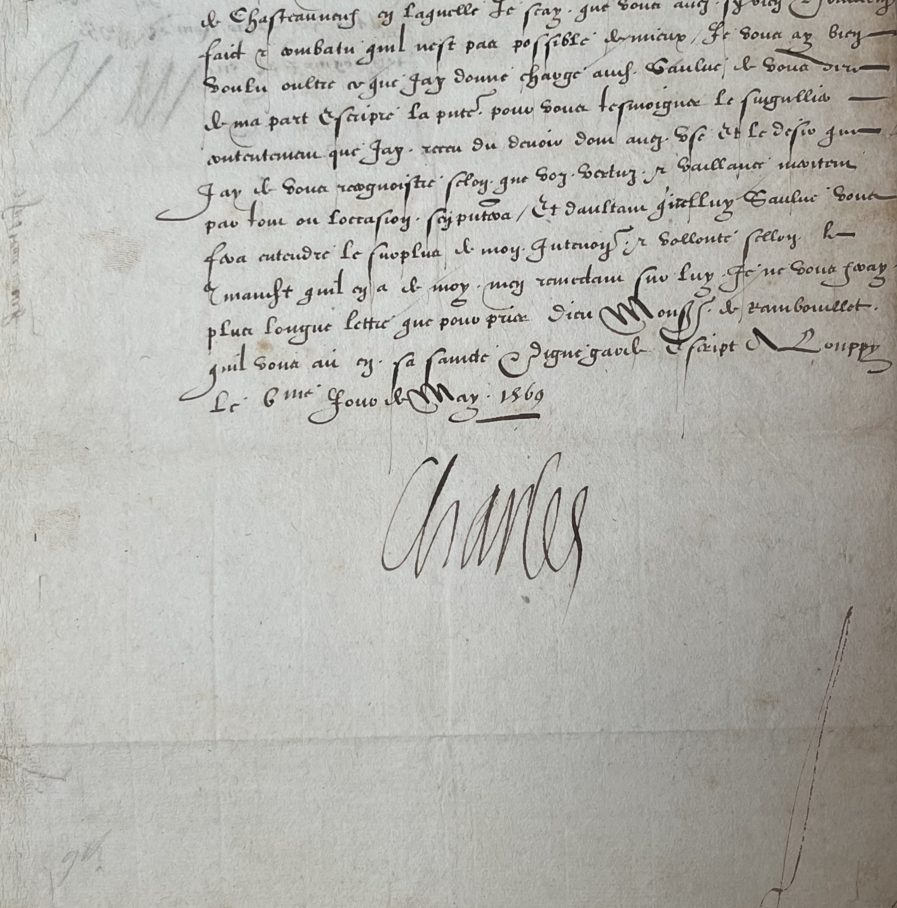 de Chasteauneuf en laquelle Je scay que vous avez sy bien
faict & combatu quil nest pas possible de mieux / Je vous ay bien
voulu oultre ce que Jay donné charge au Sr Saulve de vous dire
de ma part Escripre la pnte pour vous tesmoigner le singullier
contentement que Jay receu du devoir dont avez usé Et le desir que
Jay de vous recognoistre selon que voz vertuz & vaillance meritent
par tout ou loccasion sen pntera / Et daultant que Saulve vous
fera entendre le surplus de mon Intention & vollonté sellon le
quil en a de moy men remectant sur luy Je ne vous feray
plus longue lettre que pour prier Dieu Monsr de Rambouillet
quil vous ait en sa saincte & digne garde Escript A Louppy
Le 6me Jour de May 1569
Charles